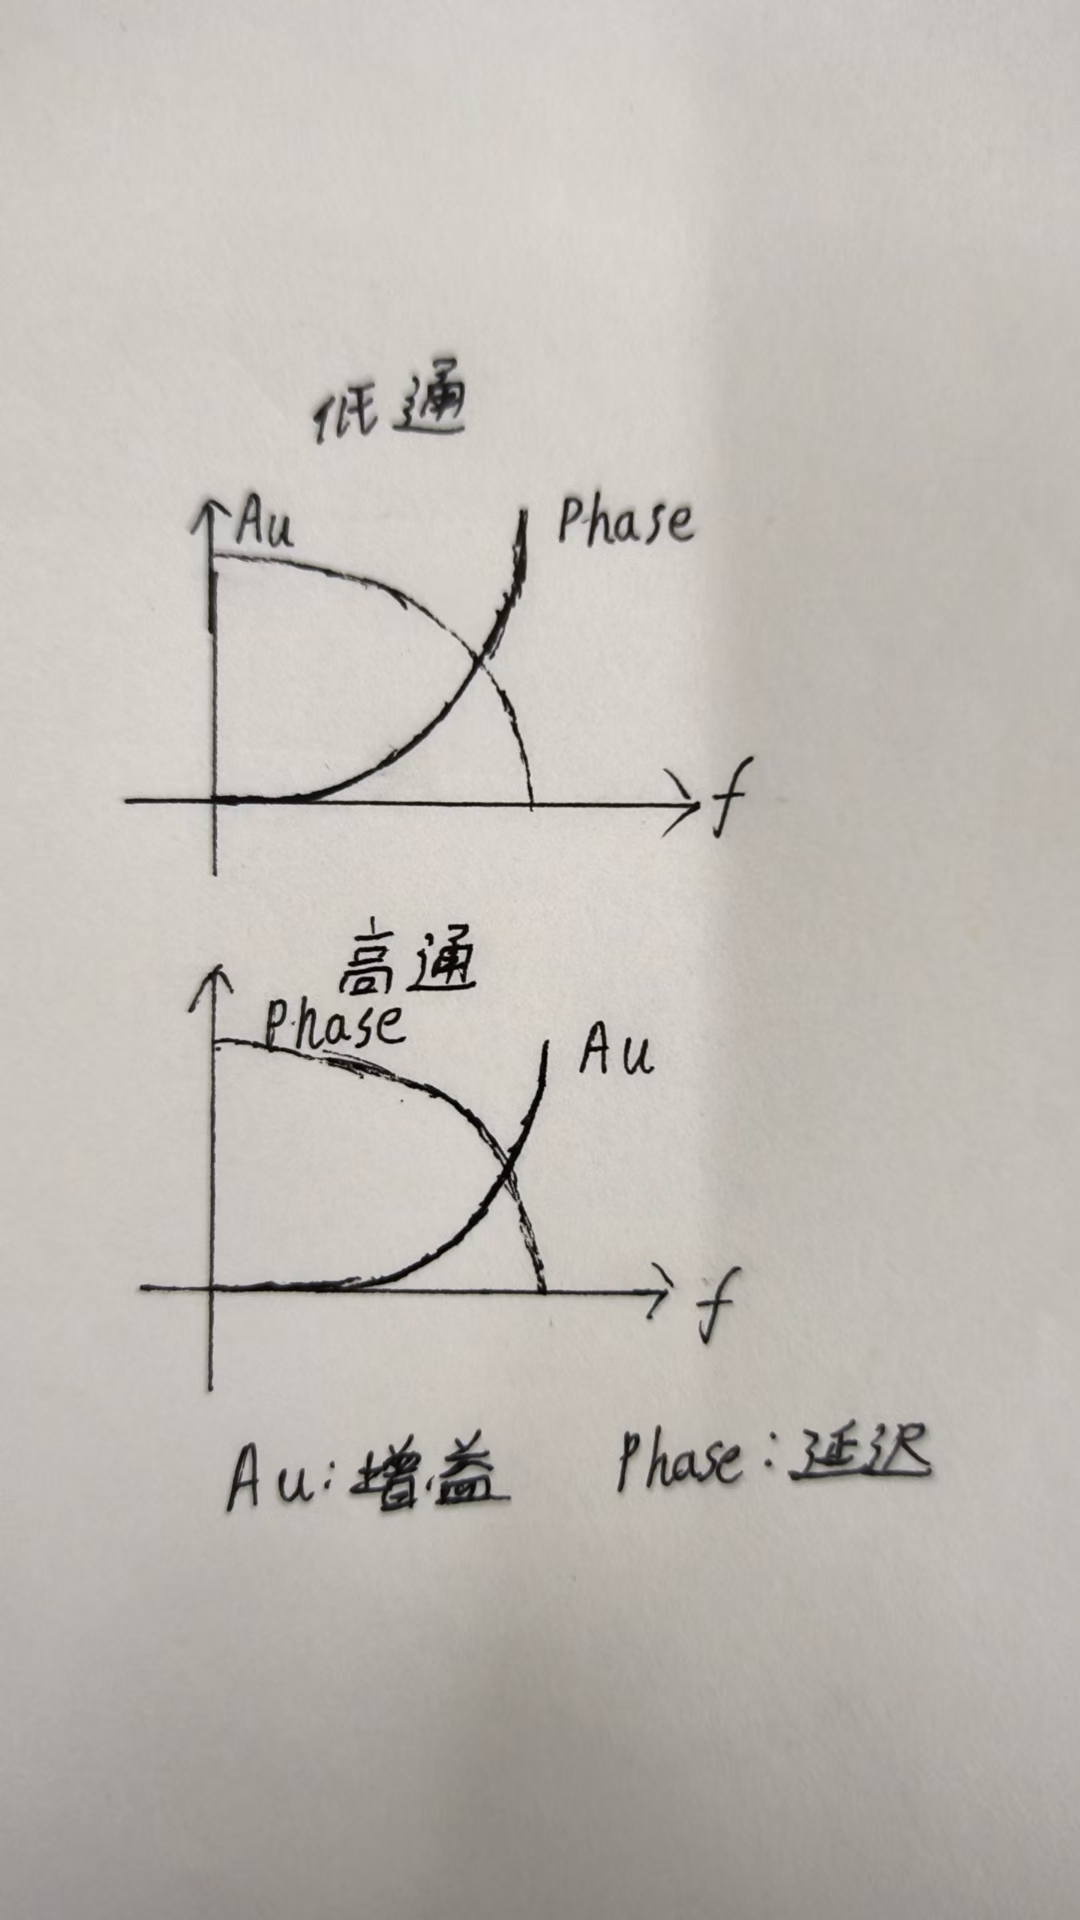 低通
Au Phase
f
高通
Phase
Au
f
Au:增益 Phase:延迟